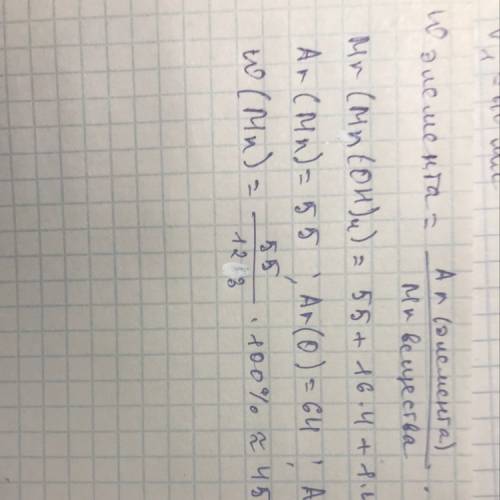 w элемента = Ar(элемента) / Mr вещества ·
Mr (Mn(OH)4) = 55 + 16·4 + 1·
Ar (Mn) = 55 , Ar(O) = 64 , A
w (Mn) = 55 / 123 · 100% ≈ 45